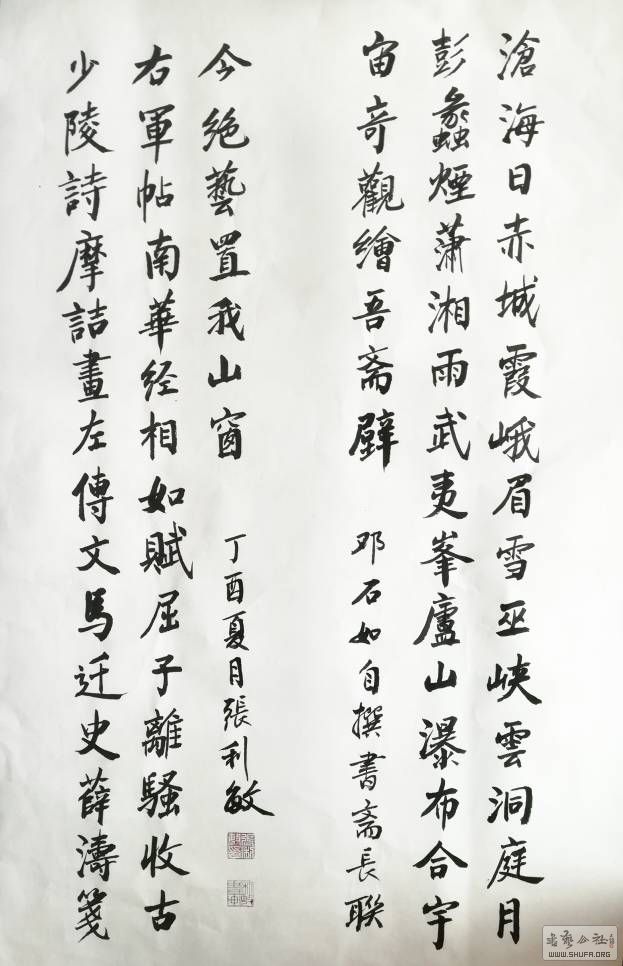 滄海日赤城霞峨眉雪巫峽雲洞庭月
彭蠡煙瀟湘雨武夷峯廬山瀑布合宇
宙奇觀繪吾斋壁 邓石如自撰書斋長联
少陵詩摩詰畫左傳文馬迁史薛濤箋
右軍帖南華经相如賦屈子離騷收古
今绝藝置我山窗 丁酉夏月張利敏
书艺公社
WWW.SHUFA.ORG